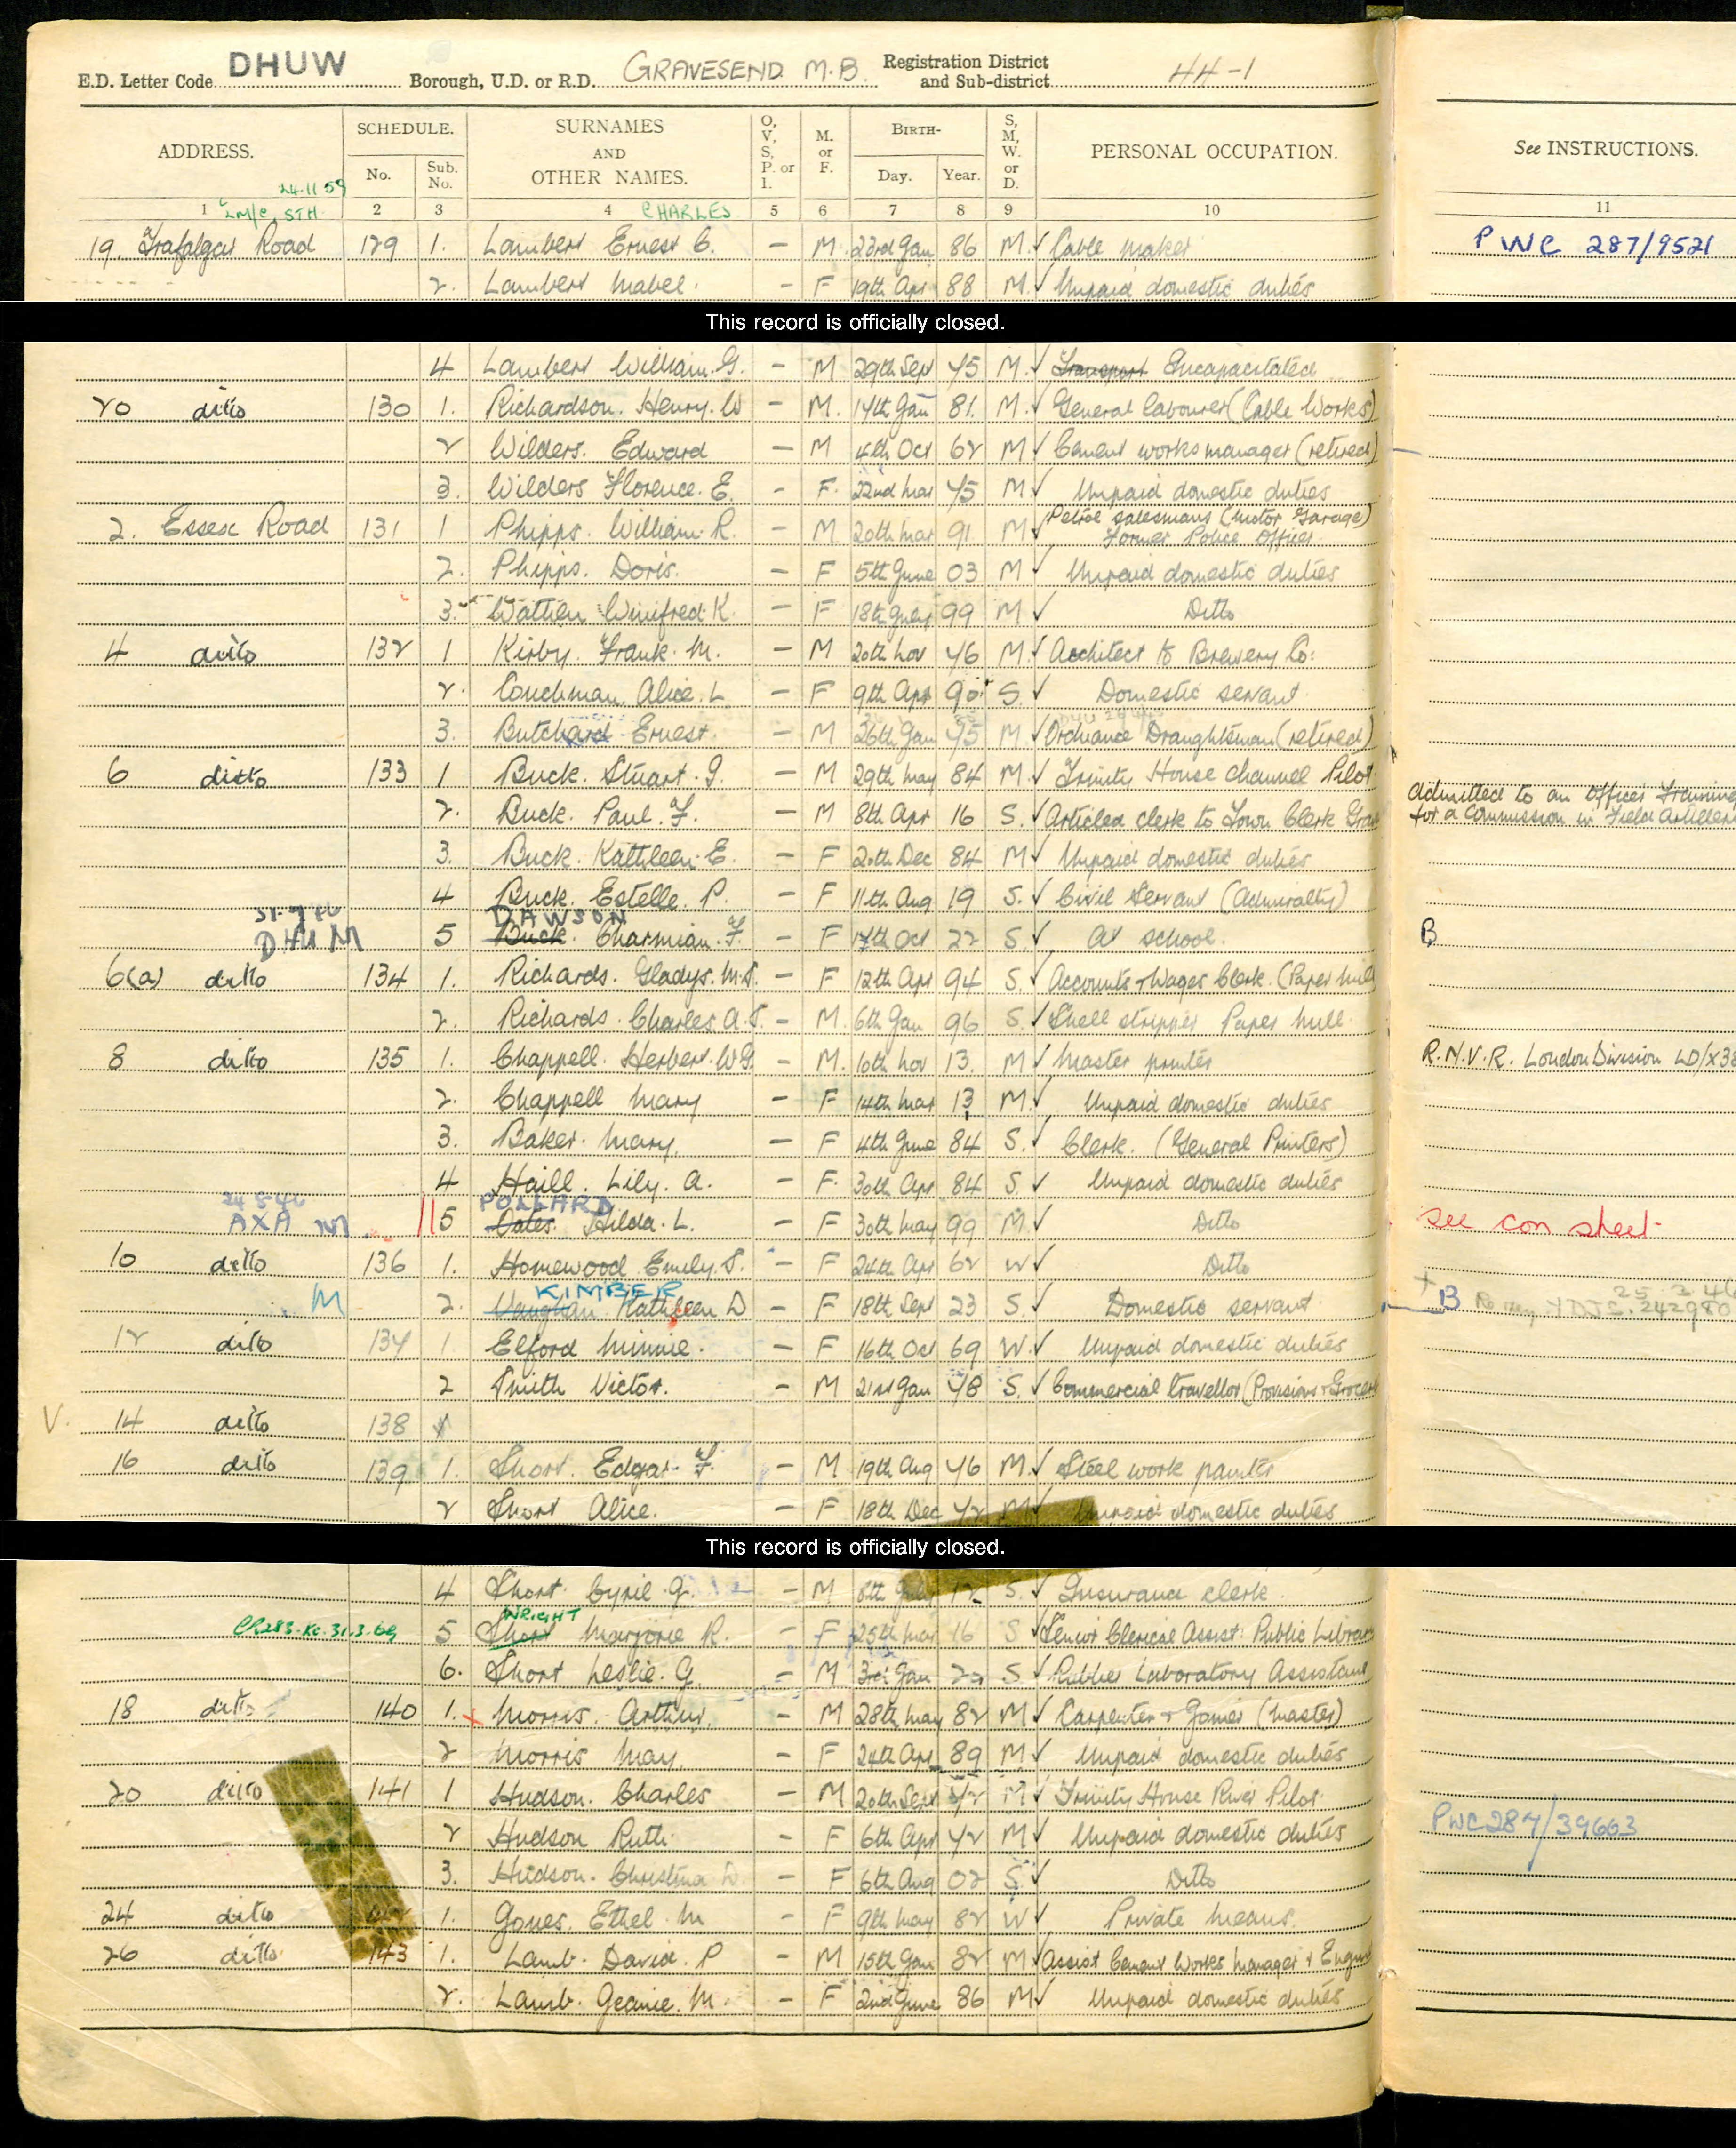 E.D. Letter Code DHUW Borough, U.D. or R.D. GRAVESEND M.B. Registration District and Sub-district 44-1
ADDRESS. SCHEDULE. No. Sub. No. SURNAMES AND OTHER NAMES. O, V, S, P. or I. M. or F. BIRTH- Day. Year. S, M, W. or D. PERSONAL OCCUPATION. See INSTRUCTIONS.
24.11.59
1 2 3 4 5 6 7 8 9 10 11
CHARLES
19. Trafalgar Road 129 1. Lambert Ernest C. – M. 23rd Jan 86 M. ✓ Cable maker PWC 287/9521
2. Lambert Mabel. – F 19th Apr 88 M. ✓ Unpaid domestic duties
This record is officially closed.
4 Lambert William. G. – M 29th Sept 75 M. ✓ Transport Incapacitated
20 ditto 130 1. Richardson. Henry. W – M. 17th Jan 81. M. ✓ General labourer (Cable Works)
2 Wilders. Edward – M 4th Oct 62 M ✓ Cement works manager (retired)
3. Wilders Florence. E. – F. 22nd Mar 75 M ✓ Unpaid domestic duties
2. Essex Road 131 1 Phipps. William. R. – M 20th Mar 91 M ✓ Petrol salesmans (Motor Garage)
Former Police Officer.
2. Phipps. Doris. – F 5th June 03 M ✓ Unpaid domestic duties
3. Winifred. K. – F 18th 99 M ✓ Ditto
4 ditto 132 1 Kirby. Frank. M. – M 20th Nov 76 M. ✓ Architect to Brewery Co.
2. Couchman. Alice. L – F 9th Apr 90 S. ✓ Domestic servant
3. Butchard Ernest. – M 26th Jan 75 M. ✓ Ordnance Draughtsman (retired)
6 ditto 133 1 Buck. Stuart. G. – M 29th May 84 M. ✓ Trinity House Channel Pilot
2. Buck. Paul. F. – M 8th Apr 16 S. ✓ Articled clerk to Town Clerk Admitted to an Officer Training
for a Commission in Field Artillery
3. Buck. Kathleen. E. – F 20th Dec 84 M ✓ Unpaid domestic duties
4 Buck. Estelle. P. – F 11th Aug 19 S. ✓ Civil Servant (Admiralty)
DHUM DAWSON
5 Buck. Charmian. F. – F 17th Oct 22 S. ✓ At school. B
6(a) ditto 134 1. Richards. Gladys. M.S. – F 12th Apr 94 S. ✓ Accounts + Wages Clerk. (Paper Mill)
2. Richards. Charles. A. S. – M. 6th Jan 96 S. ✓ Paper Mill.
8 ditto 135 1. Chappell. Herbert. W.G. – M. 10th Nov 13. M ✓ Master printer R.N.V.R. London Division LD/X38
2. Chappell Mary – F 14th Mar 13 M. ✓ Unpaid domestic duties
3. Baker. Mary. – F 4th June 84 S. ✓ Clerk. (General Printers)
4 Haill. Lily. A. – F. 30th Apr 84 S. ✓ Unpaid domestic duties
24 5 46 AXA M POLLARD
5 Oates. Hilda. L. – F 30th May 99 M. ✓ Ditto See con sheet
10 ditto 136 1. Homewood Emily. S. – F 24th Apr 62 W ✓ Ditto
KIMBER
M 2. Vaughan. Kathleen D – F 18th Sept 23 S. ✓ Domestic servant. B 25.2.46
12 ditto 137 1. Elford Minnie. – F 16th Oct 69 W. ✓ Unpaid domestic duties
2 Smith Victor. – M 21st Jan 78 S. ✓ Commercial traveller (Provisions + Grocery
V. 14 ditto 138
16 ditto 139 1. Short. Edgar. F. – M 19th Aug 76 M. ✓ Steel work painter
2 Short Alice. – F 18th Dec 72 M ✓ Unpaid domestic duties
This record is officially closed.
4 Short. Cyril. G. – M 8th 12 S. ✓ Insurance clerk
WRIGHT
CR283. 31.3.69 5 Short Marjorie R. – F 25th Mar 16 S ✓ Senior Clerical Assist. Public Library
6. Short Leslie. G. – M 3rd Jan S ✓ Rubber Laboratory Assistant
18 ditto 140 1. Morris. Arthur. – M 28th May 82 M ✓ Carpenter + Joiner (Master)
2 Morris May. – F 24th Apr 89 M ✓ Unpaid domestic duties
20 ditto 141 1 Hudson. Charles – M 20th Sept 72 M ✓ Trinity House River Pilot
2 Hudson Ruth. – F 6th Apr 72 M ✓ Unpaid domestic duties PWC287/39663
3. Hudson. Christina D. – F 6th Aug 02 S. ✓ Ditto
24 ditto 1. Jones. Ethel. M – F 9th May 82 W ✓ Private means.
26 ditto 143 1. Lamb. David. P – M 15th Jan 82 M ✓ Assist Cement Works Manager +
2. Lamb. Jeanie. M. – F 2nd June 86 M ✓ Unpaid domestic duties